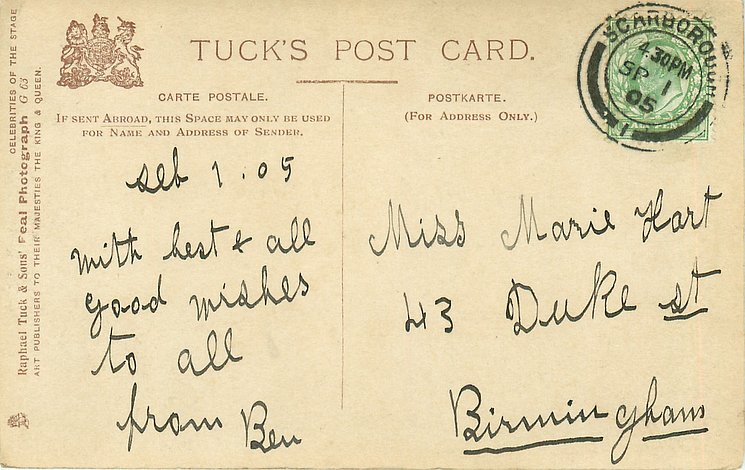 TUCK'S POST CARD.
CARTE POSTALE.
IF SENT ABROAD, THIS SPACE MAY ONLY BE USED
FOR NAME AND ADDRESS OF SENDER.
POSTKARTE.
(FOR ADDRESS ONLY.)
SCARBOROUGH
4.30PM
SP 1
05
seb 1.05
with best & all
good wishes
to all
from Ben
Miss Marie Hart
43 Duke st
Birmingham
CELEBRITIES OF THE STAGE
Raphael Tuck & Sons' Real Photograph G 63
ART PUBLISHERS TO THEIR MAJESTIES THE KING & QUEEN.